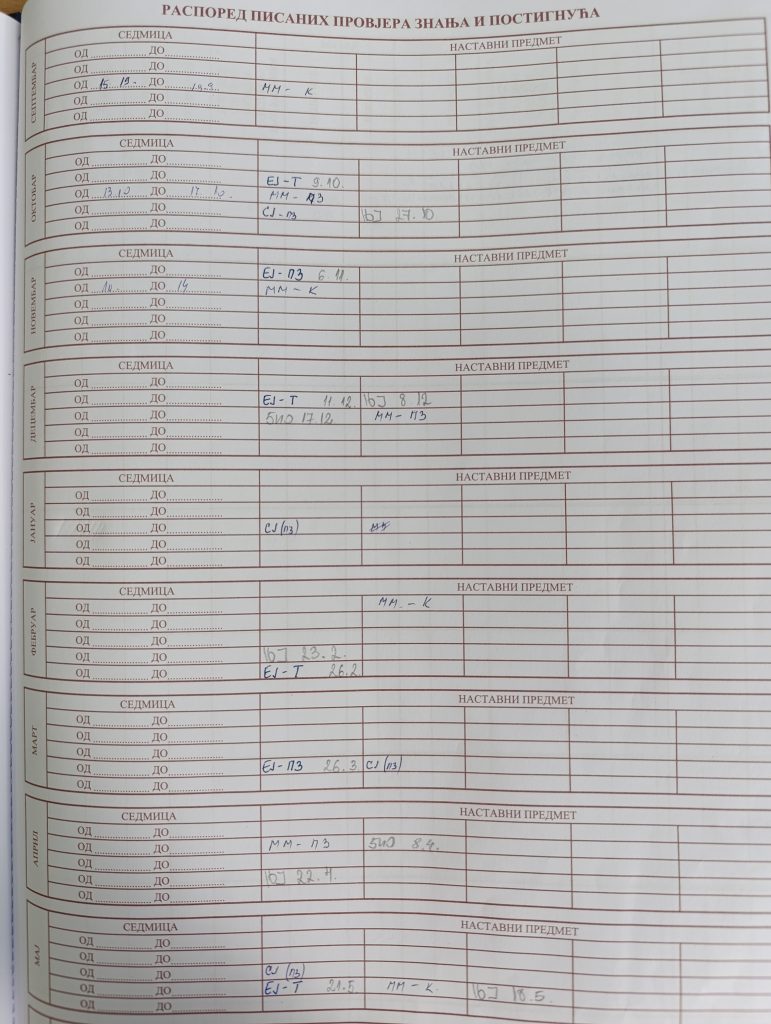 РАСПОРЕД ПИСАНИХ ПРОВЈЕРА ЗНАЊА И ПОСТИГНУЋА
СЕПТЕМБАР
СЕДМИЦА НАСТАВНИ ПРЕДМЕТ
ОД ДО
ОД ДО
ОД 15. 19. ДО 19.9. ММ - К
ОД ДО
ОД ДО
ОКТОБАР
СЕДМИЦА НАСТАВНИ ПРЕДМЕТ
ОД ДО
ОД ДО ЕЈ-Т 9.10.
ОД 13.10 ДО 17.10. ММ - ПЗ
ОД ДО СЈ-ПЗ 27.10
ОД ДО
НОВЕМБАР
СЕДМИЦА НАСТАВНИ ПРЕДМЕТ
ОД ДО ЕЈ-ПЗ 6.11.
ОД 10. ДО 14 ММ-К
ОД ДО
ОД ДО
ОД ДО
ДЕЦЕМБАР
СЕДМИЦА НАСТАВНИ ПРЕДМЕТ
ОД ДО
ОД ДО ЕЈ-Т 11.12. 8.12
ОД ДО БИО 17.12 ММ-ПЗ
ОД ДО
ОД ДО
ЈАНУАР
СЕДМИЦА НАСТАВНИ ПРЕДМЕТ
ОД ДО
ОД ДО
ОД ДО СЈ (ПЗ)
ОД ДО
ОД ДО
ФЕБРУАР
СЕДМИЦА НАСТАВНИ ПРЕДМЕТ
ОД ДО ММ. - К
ОД ДО
ОД ДО
ОД ДО 23.2.
ОД ДО ЕЈ-Т 26.2
МАРТ
СЕДМИЦА НАСТАВНИ ПРЕДМЕТ
ОД ДО
ОД ДО
ОД ДО
ОД ДО ЕЈ-ПЗ 26.3. СЈ (ПЗ)
ОД ДО
АПРИЛ
СЕДМИЦА НАСТАВНИ ПРЕДМЕТ
ОД ДО
ОД ДО ММ-ПЗ БИО 8.4.
ОД ДО
ОД ДО 22.4.
ОД ДО
МАЈ
СЕДМИЦА НАСТАВНИ ПРЕДМЕТ
ОД ДО
ОД ДО
ОД ДО СЈ (ПЗ)
ОД ДО ЕЈ-Т 21.5. ММ-К. 18.5.
ОД ДО